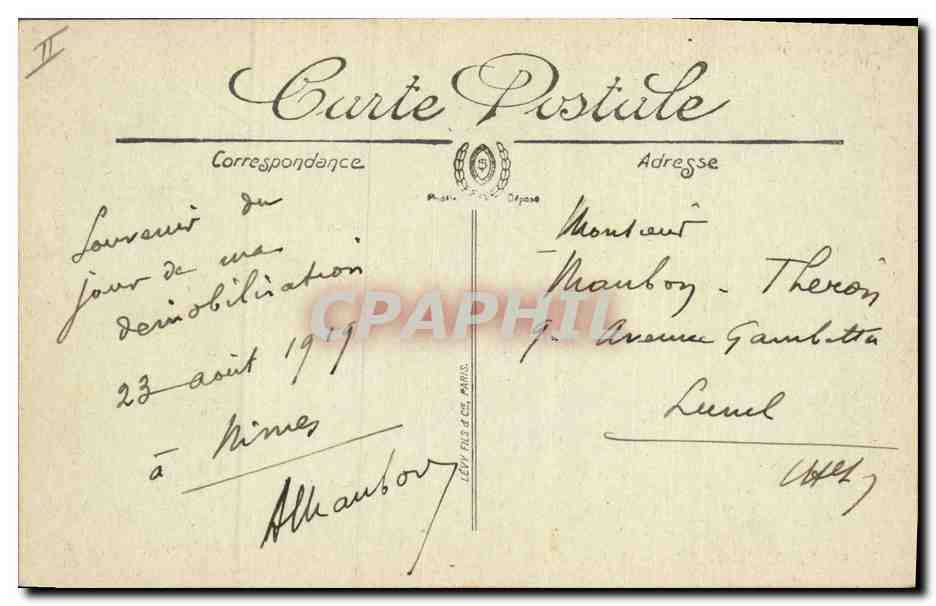 II
Carte Postale
Correspondance
Adresse
Déposé
Souvenir du
jour de ma
démobilisation
23 août 1919
à Nimes
AMaubon
LÉVY FILS & Cie, PARIS.
Monsieur
Maubon - Theron
9. Avenue Gambetta
Lunel
CPAPHIL